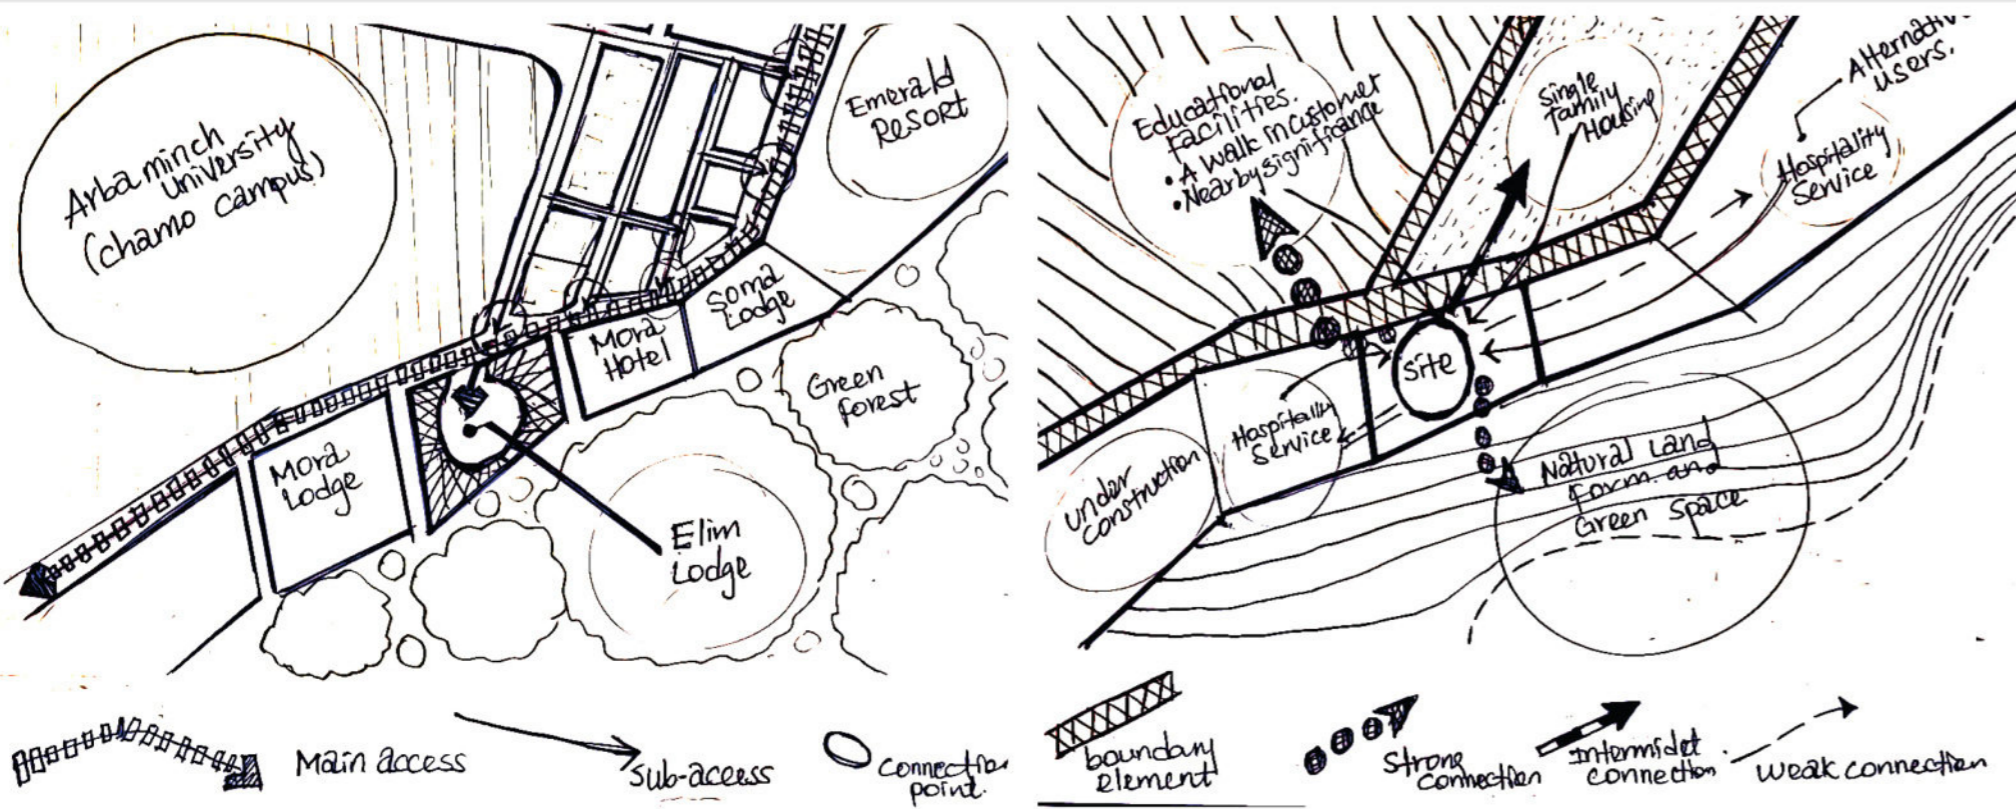 Arbaminch
university
(chamo campus)
Emerald
Resort
Soma
Lodge
Mora
Hotel
Mora
Lodge
Green
forest
Elim
Lodge
Main access
Sub-access
Connection
point.
Educational
Facilities.
• A walk in customer
• Nearby significance
Single
family
Housing
Alternative
users.
Hospitality
Service
site
Hospitality
Service
under
construction
Natural Land
Form and
Green Space
boundary
element
Strong
connection
Intermidet
connection
weak connection